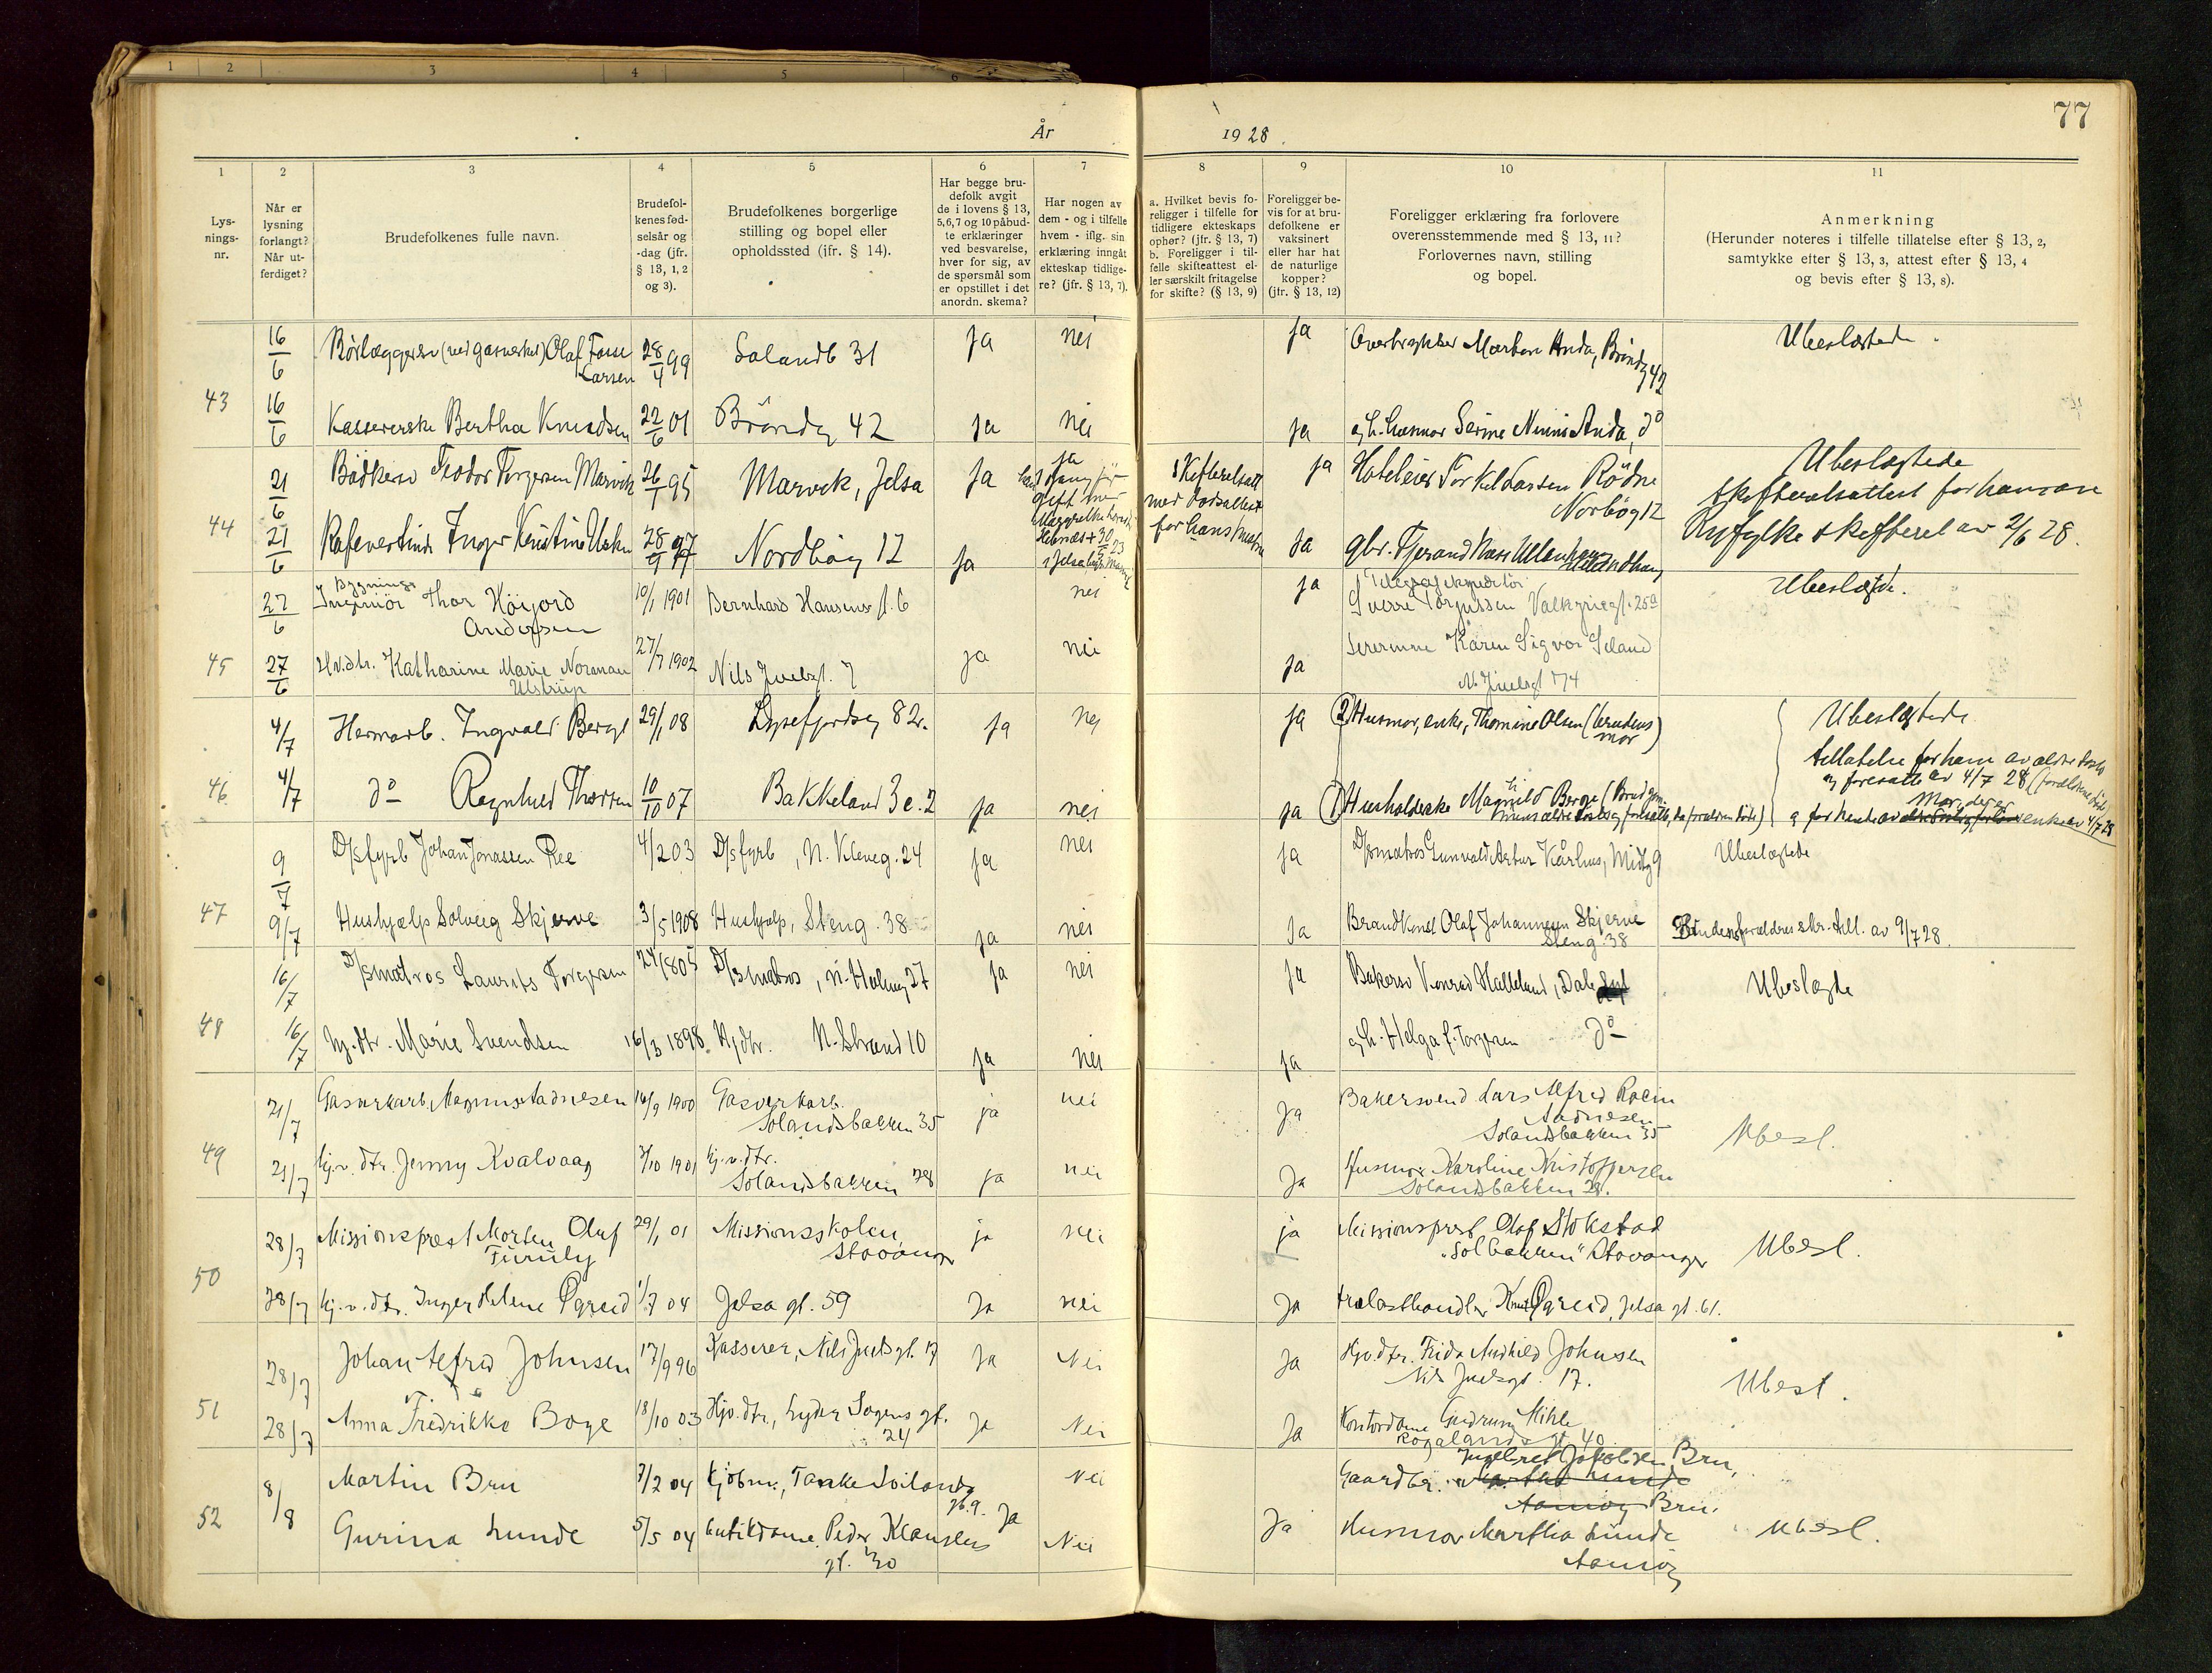 1 2 3 4 5 6
77
År 1928.
1 2 3 4 5 6 7 8 9 10 11
Lysningsnr.
Når er lysning forlangt? Når utferdiget?
Brudefolkenes fulle navn.
Brudefolkenes fødselsår og -dag (jfr. § 13, 1, 2 og 3).
Brudefolkenes borgerlige stilling og bopel eller opholdssted (ifr. § 14).
Har begge brudefolk avgit de i lovens § 13, 5,6,7 og 10 påbudte erklæringer ved besvarelse, hver for sig, av de spørsmål som er opstillet i det anordn. skema?
Har nogen av dem - og i tilfelle hvem - iflg. sin erklæring inngåt ekteskap tidligere? (jfr. § 13, 7).
a. Hvilket bevis foreligger i tilfelle for tidligere ekteskaps ophør? (jfr. § 13, 7) b. Foreligger i tilfelle skifteattest eller særskilt fritagelse for skifte? (§ 13, 9)
Foreligger bevis for at brudefolkene er vaksinert eller har hat de naturlige kopper? (jfr. § 13, 12)
Foreligger erklæring fra forlovere overensstemmende med § 13, 11? Forlovernes navn, stilling og bopel.
Anmerkning
(Herunder noteres i tilfelle tillatelse efter § 13, 2, samtykke efter § 13, 3, attest efter § 13, 4 og bevis efter § 13, 8).
43
16/6 Rörlæggersv (ved gasverket) Olaf Larsen 28/4 99 Solandb 31 ja nei ja Morten Anda, Bröndg 42 Ubeslægtede.
16/6 Kassererske Bertha Knudsen 22/6 01 Bröndg 42 ja nei ja og h. husmor Serine Anda, do
44
21/6 Bödkersv Teodor Torgersen Marvik 26/1 95 Marvik, Jelsa ja ja gift med 30/5 23 i Jelsa Skifteretsatt med dödsattest for hans hustru ja Hoteleier Torkel Larsen Rödne Norbög 12 Ubeslægtede
Skifteretsattest for ham av Ryfylke skifteret av 2/6 28.
21/6 Kafevertinde Inger Kristine 28/9 97 Nordbög 12 ja ja gbr. Tjerand
45
27/6 Bygningsingeniör Thor Höyord Andersen 10/1 1901 Bernhard Hansens g. 6 nei ja Sverre Torgussen Valkyriegt. 25a Ubeslægtede.
27/6 Hv.dtr. Katharine Marie Norman Ulstrup 27/7 1902 Nils Juelsgt. 7 ja nei ja Karen Sigvor Seland N. Juelsgt 74
46
4/7 Hermarb. Ingvald Berge 29/1 08 Lysefjordsg 82. ja nei ja (2) Husmor, enke, Thomine Olsen (brudens mor) Ubeslægtede
4/7 do Ragnhild Thorsen 10/10 07 Bakkeland 3e. 2 ja nei ja (1) Husholderske Magnhild Berge
tillatelse for ham av
og foresatte av 4/7 28
47
9/7 D/sfyrb Johan Jonassen Ree 4/2 03 D/sfyrb, N. Kleveg. 24 ja nei ja D/smatros Gunvald Artur Kårhus, Midtg 9 Ubeslægtede
9/7 Hushjælp Solveig Skjerve 3/5 1908 Hushjælp, Steng. 38 ja nei ja Brandkonst Olaf Johannesen Skjerve Steng. 38 Brudens forældres skr. till. av 9/7 28.
48
16/7 D/smatros Laurits Torgersen 24/8 05 D/smatros, N. Holmeg 27 ja nei ja Bakersv Konrad Halleland, Dale Ubeslægtede
16/7 Hj.dtr. Marie Svendsen 16/3 1898 Hj.dtr. N. Strand 10 ja nei ja og h. Helga f. Torgersen do
49
21/7 Gasverkarb. Magnus Aadnesen 14/9 1900 Gasverkarb. Solandsbakken 35 ja nei ja Bakersvend Lars Alfred Aadnesen Solandsbakken 35 Ubesl.
21/7 Hj.v.dtr. Jenny Kvalvaag 3/10 1901 hj.v.dtr. Solandsbakken 28 ja nei ja Husmor Karoline Kristoffersen Solandsbakken 28.
50
28/7 Missionsprest Morten Olaf Furuly 29/1 01 Missionsskolen Stavanger ja nei ja Missionsprest Olaf Stokstad "Solbakken" Stavanger Ubesl.
28/7 hj.v.dtr. Inger Helene Øgreid 1/7 04 Jelsa gt. 59 ja nei ja trelasthandler Knut Øgreid, Jelsa gt. 61.
51
28/7 Johan Alfred Johnsen 17/9 96 Kasserer, Nils Juels gt. 17 ja Nei ja Hjv.dtr. Frida Johnsen Nils Juelsgt. 17. Ubesl.
28/7 Anna Fredrikke Boye 18/10 03 Hjv.dtr., Lyder Sagens gt. 24 ja Nei ja Kontordame Gudrun Mihle Rogalandsgt 40
52
8/8 Martin Bru 7/2 04 Kjöbm., Tanke Svilands gt. 9. ja Nei Gaardbr. Ingebret Jakobsen Bru, Bru.
Gurina Lunde 5/5 04 butikdame, Peder Klausens gt. 30 Nei ja Husmor Martha Lunde Aamöy Ubesl.